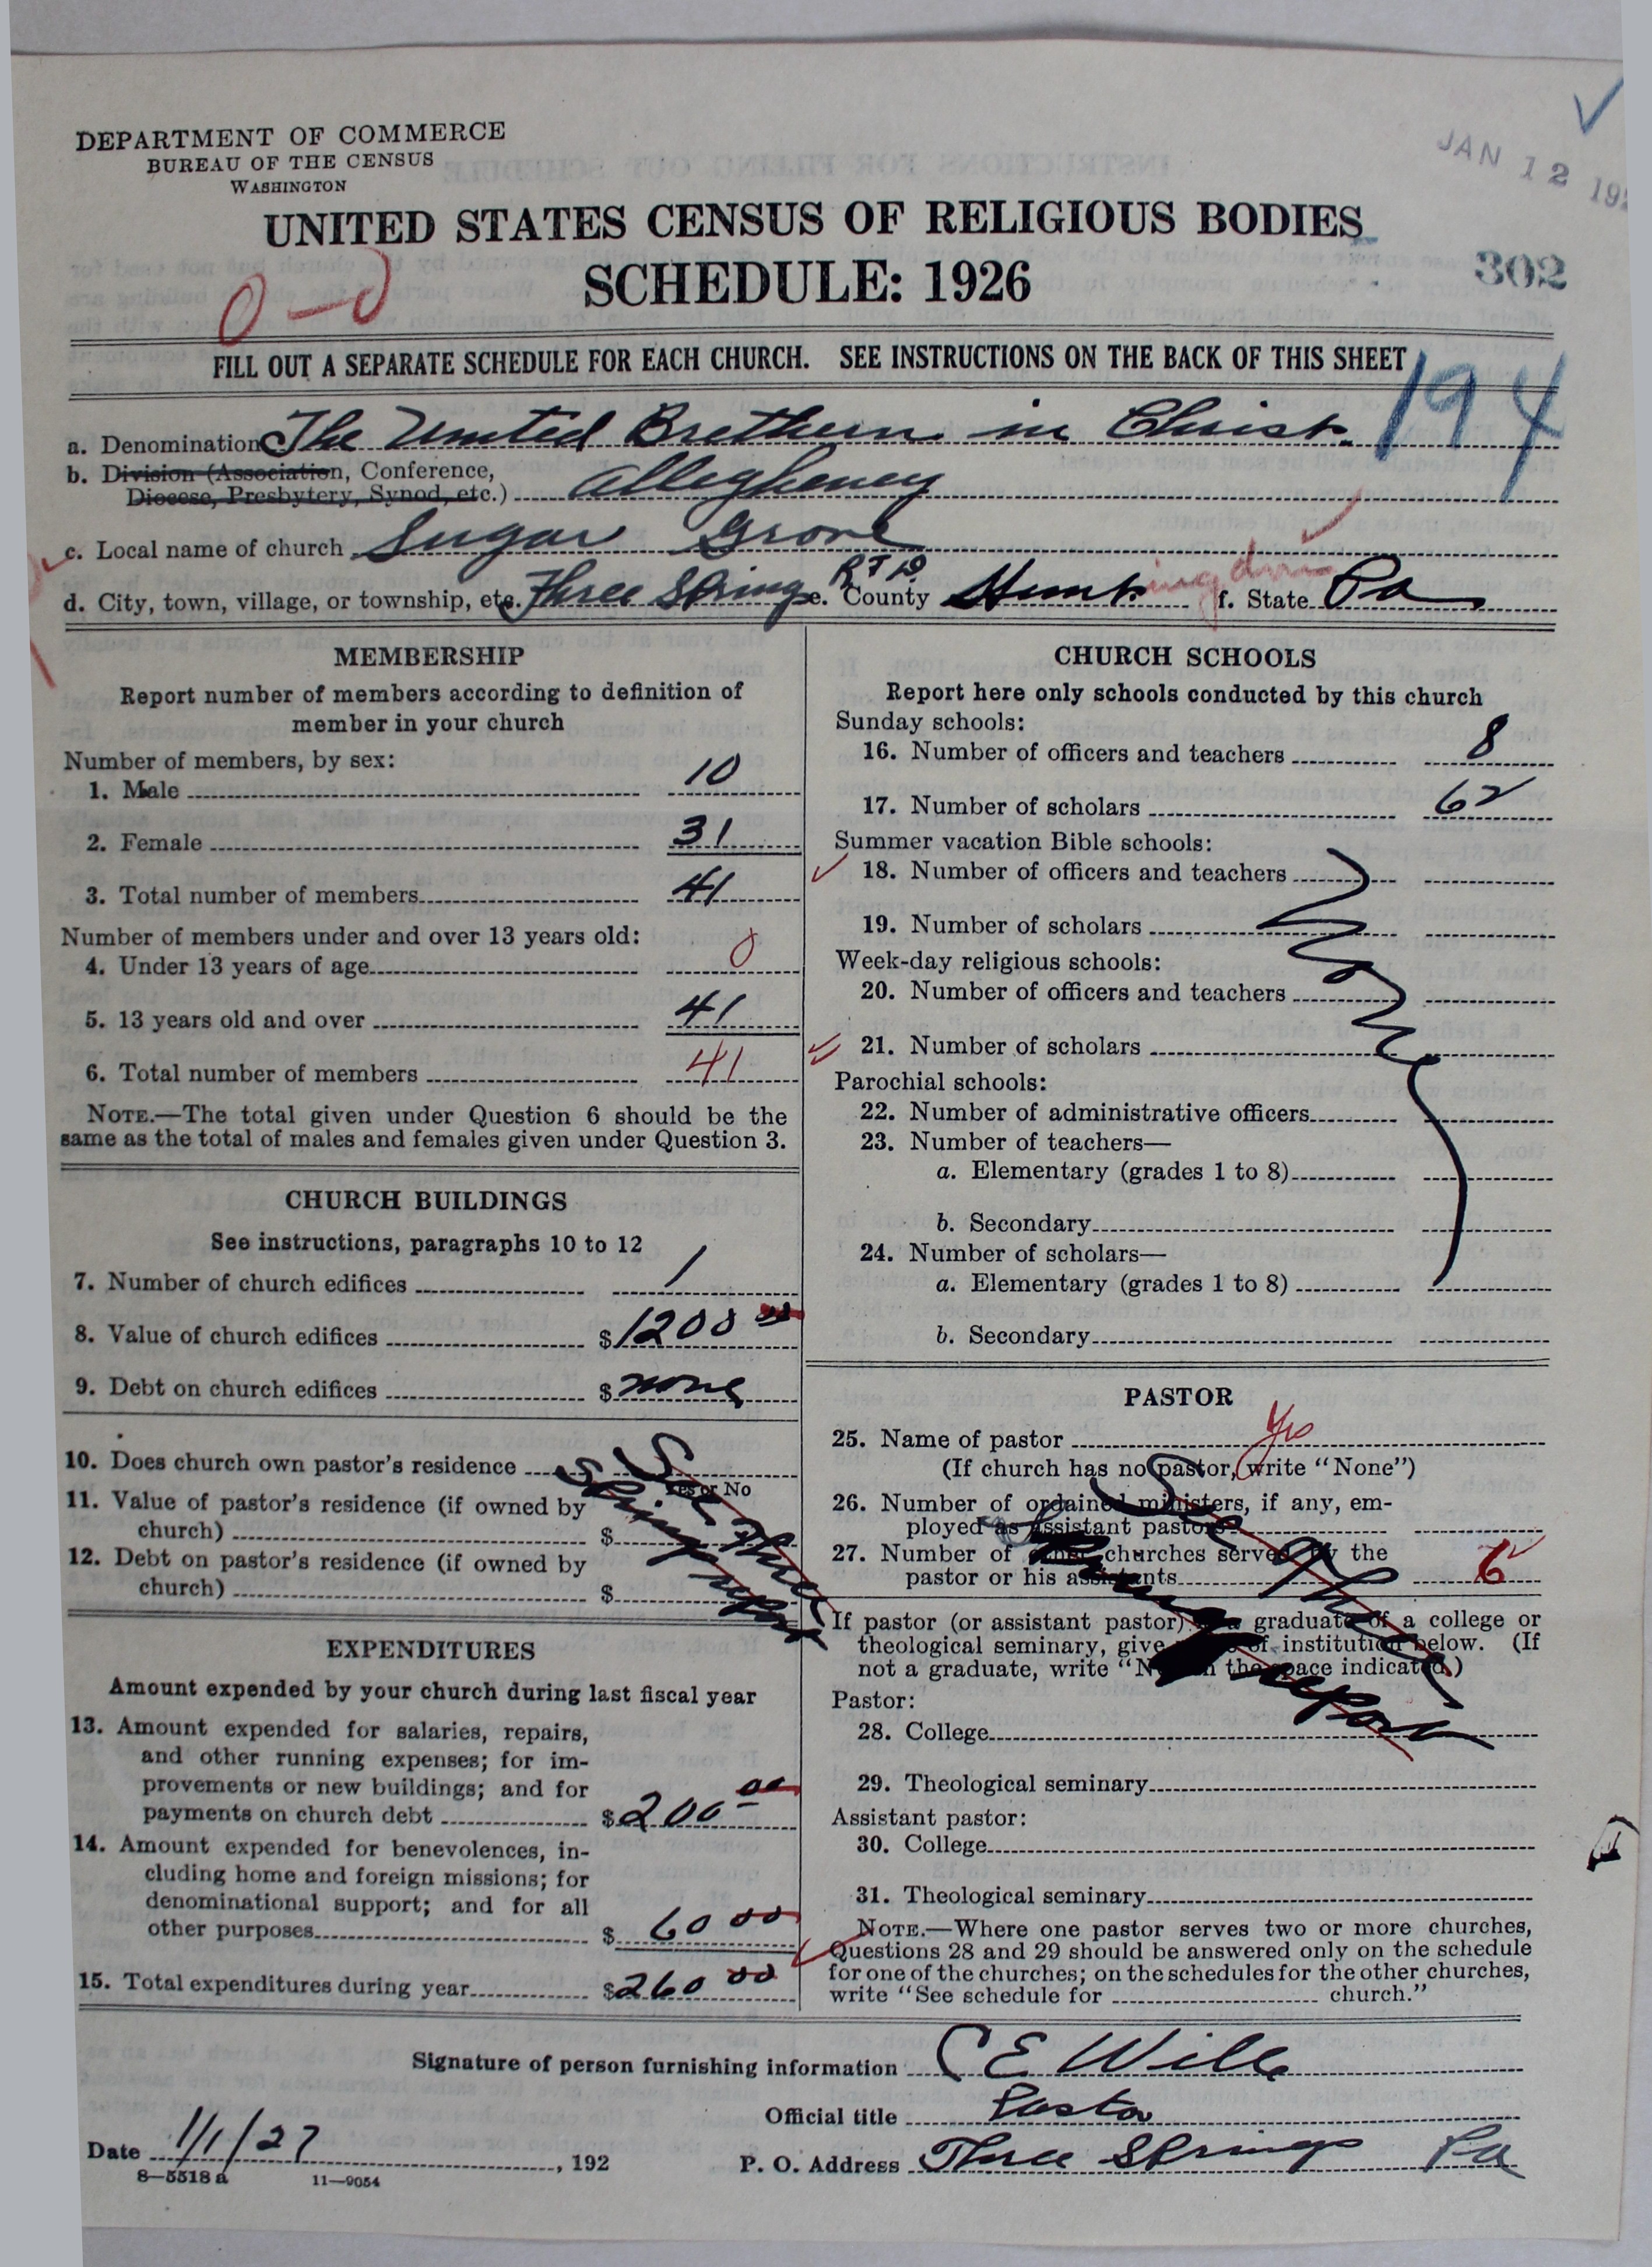 DEPARTMENT OF COMMERCE
BUREAU OF THE CENSUS
WASHINGTON
JAN 12 192
UNITED STATES CENSUS OF RELIGIOUS BODIES
SCHEDULE: 1926
302
0-0
FILL OUT A SEPARATE SCHEDULE FOR EACH CHURCH. SEE INSTRUCTIONS ON THE BACK OF THIS SHEET
194
a. Denomination The United Brethern in Christ.
b. Division (Association, Conference,
Diocese, Presbytery, Synod, etc.) Allegheney
c. Local name of church Sugar Grove
d. City, town, village, or township, etc. Three Springs e. County Hunt.ingdon f. State Pa
MEMBERSHIP
Report number of members according to definition of
member in your church
Number of members, by sex:
1. Male 10
2. Female 31
3. Total number of members 41
Number of members under and over 13 years old:
4. Under 13 years of age 0
5. 13 years old and over 41
6. Total number of members 41
NOTE.—The total given under Question 6 should be the
same as the total of males and females given under Question 3.
CHURCH BUILDINGS
See instructions, paragraphs 10 to 12
7. Number of church edifices 1
8. Value of church edifices $1200 00
9. Debt on church edifices $ none
10. Does church own pastor's residence
Yes or No
11. Value of pastor's residence (if owned by
church) $
12. Debt on pastor's residence (if owned by
church) $
See Three
Springs report
EXPENDITURES
Amount expended by your church during last fiscal year
13. Amount expended for salaries, repairs,
and other running expenses; for im-
provements or new buildings; and for
payments on church debt $200 00
14. Amount expended for benevolences, in-
cluding home and foreign missions; for
denominational support; and for all
other purposes $ 60 00
15. Total expenditures during year $260 00
CHURCH SCHOOLS
Report here only schools conducted by this church
Sunday schools:
16. Number of officers and teachers 8
17. Number of scholars 62
Summer vacation Bible schools:
18. Number of officers and teachers
19. Number of scholars
Week-day religious schools:
20. Number of officers and teachers
21. Number of scholars
Parochial schools:
22. Number of administrative officers
23. Number of teachers—
a. Elementary (grades 1 to 8)
b. Secondary
24. Number of scholars—
a. Elementary (grades 1 to 8)
b. Secondary
PASTOR
25. Name of pastor yes
(If church has no pastor, write "None")
26. Number of ordained ministers, if any, em-
ployed as assistant pastors
27. Number of other churches served by the
pastor or his assistants 6
See Three
Springs report
If pastor (or assistant pastor) is a graduate of a college or
theological seminary, give name of institution below. (If
not a graduate, write "No" in the space indicated.)
Pastor:
28. College
29. Theological seminary
Assistant pastor:
30. College
31. Theological seminary
NOTE.—Where one pastor serves two or more churches,
Questions 28 and 29 should be answered only on the schedule
for one of the churches; on the schedules for the other churches,
write "See schedule for church."
Signature of person furnishing information C E Wills
Official title Pastor
Date 1/1/27, 192
P. O. Address Three Springs Pa
8—5518 a 11—9054